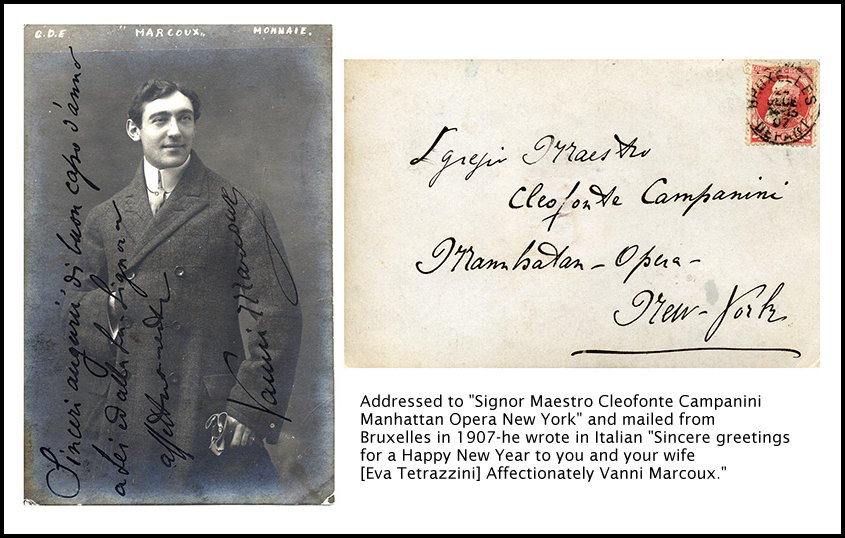 G.D.E. MARCOUX. MONNAIE.
Sinceri augurii di buon capo d'anno
a Lei ed alla sua Signora
Vanni Marcoux
Egregio Maestro
Cleofonte Campanini
Mannhatan - Opera -
New-York
BRUXELLES
07
DEPART
Addressed to "Signor Maestro Cleofonte Campanini
Manhattan Opera New York" and mailed from
Bruxelles in 1907-he wrote in Italian "Sincere greetings
for a Happy New Year to you and your wife
[Eva Tetrazzini] Affectionately Vanni Marcoux."